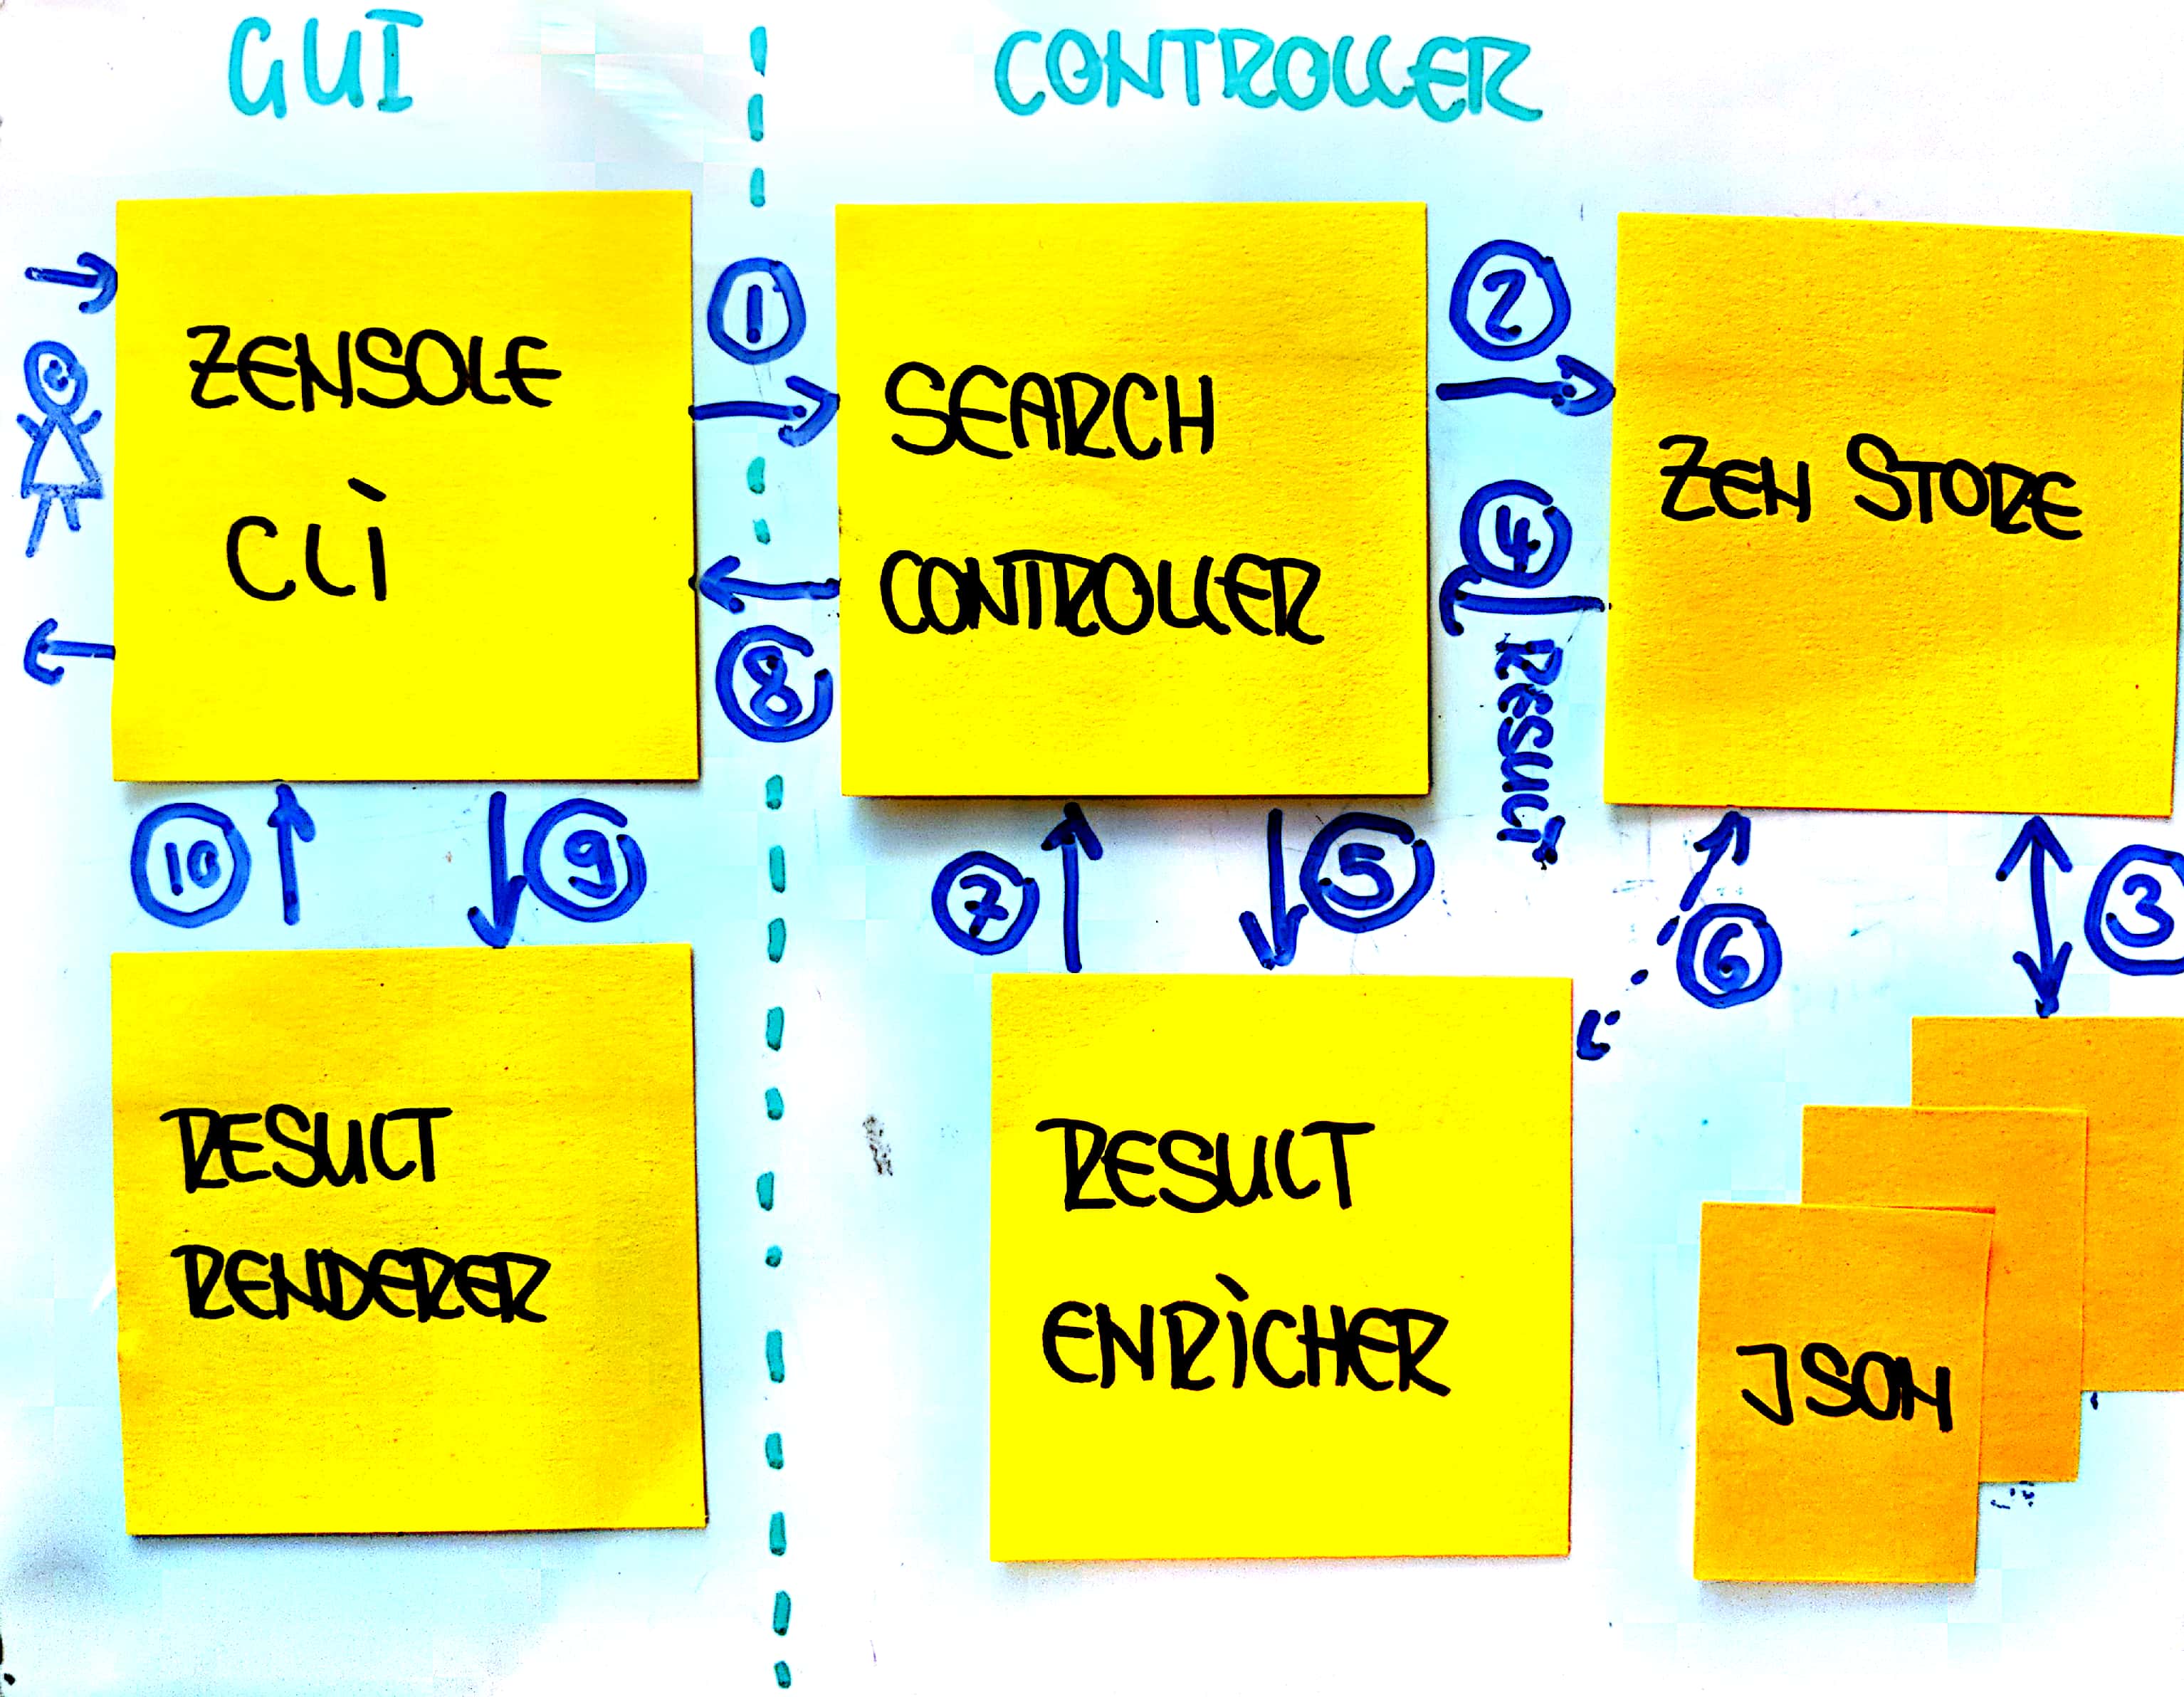 GUI
CONTROLLER
ZENSOLE
CLI
1
SEARCH
CONTROLLER
2
ZEN STORE
4
RESULT
8
10
9
7
5
6
3
RESULT
RENDERER
RESULT
ENRICHER
JSON